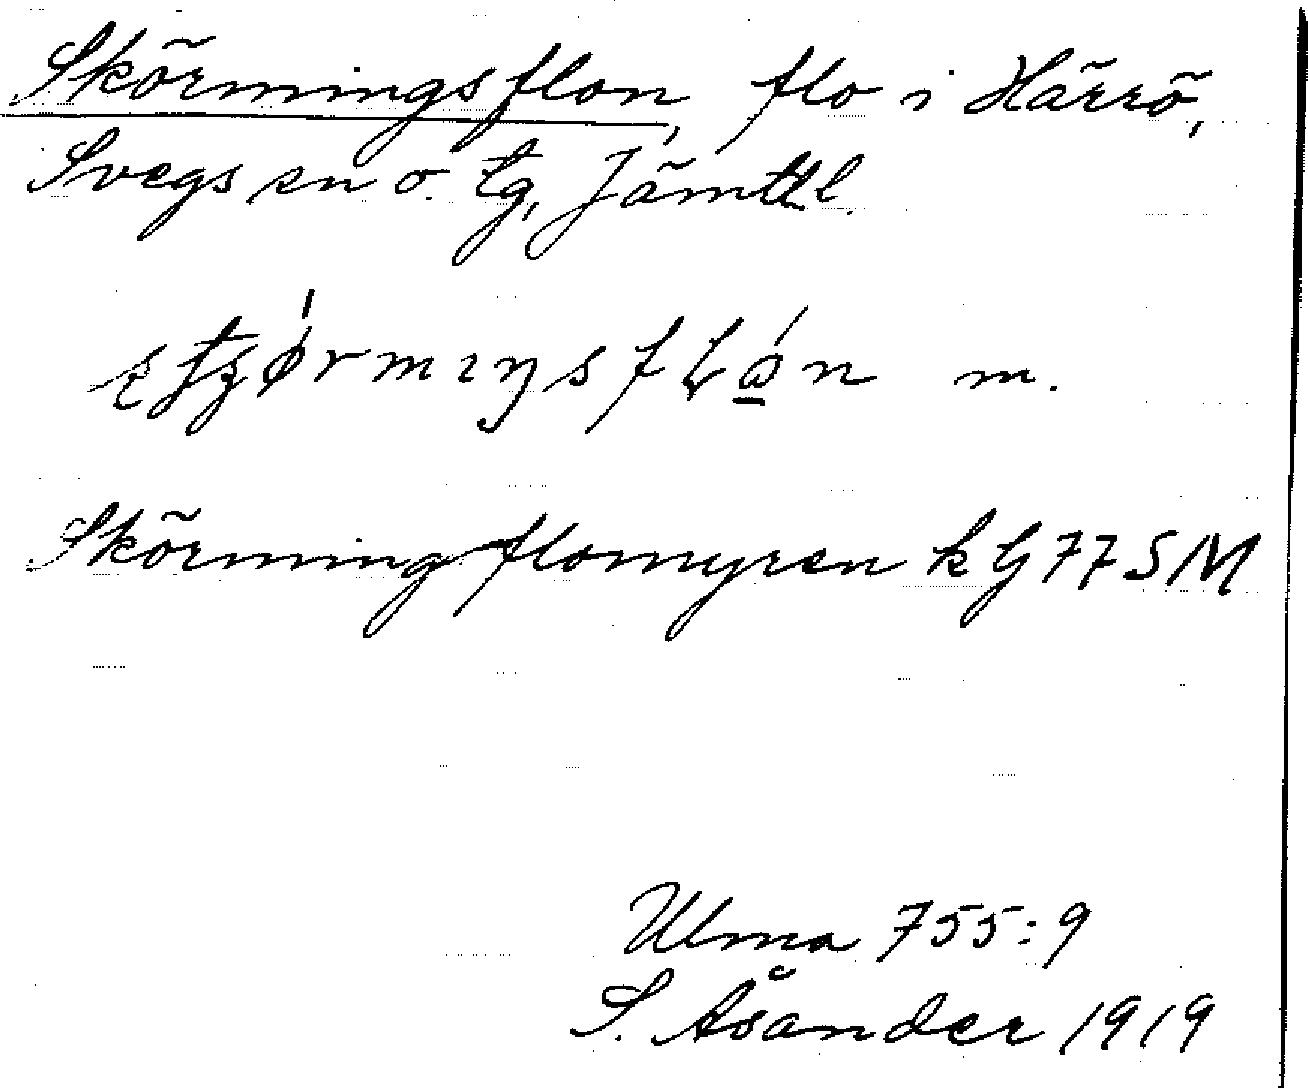 Skörmingsflon, flo i Härrö,
Svegs sn o. tg, Jämtl.
m.
Skörmingflomyren k G77SM
Ulma 755:9
S. Åsander 1919